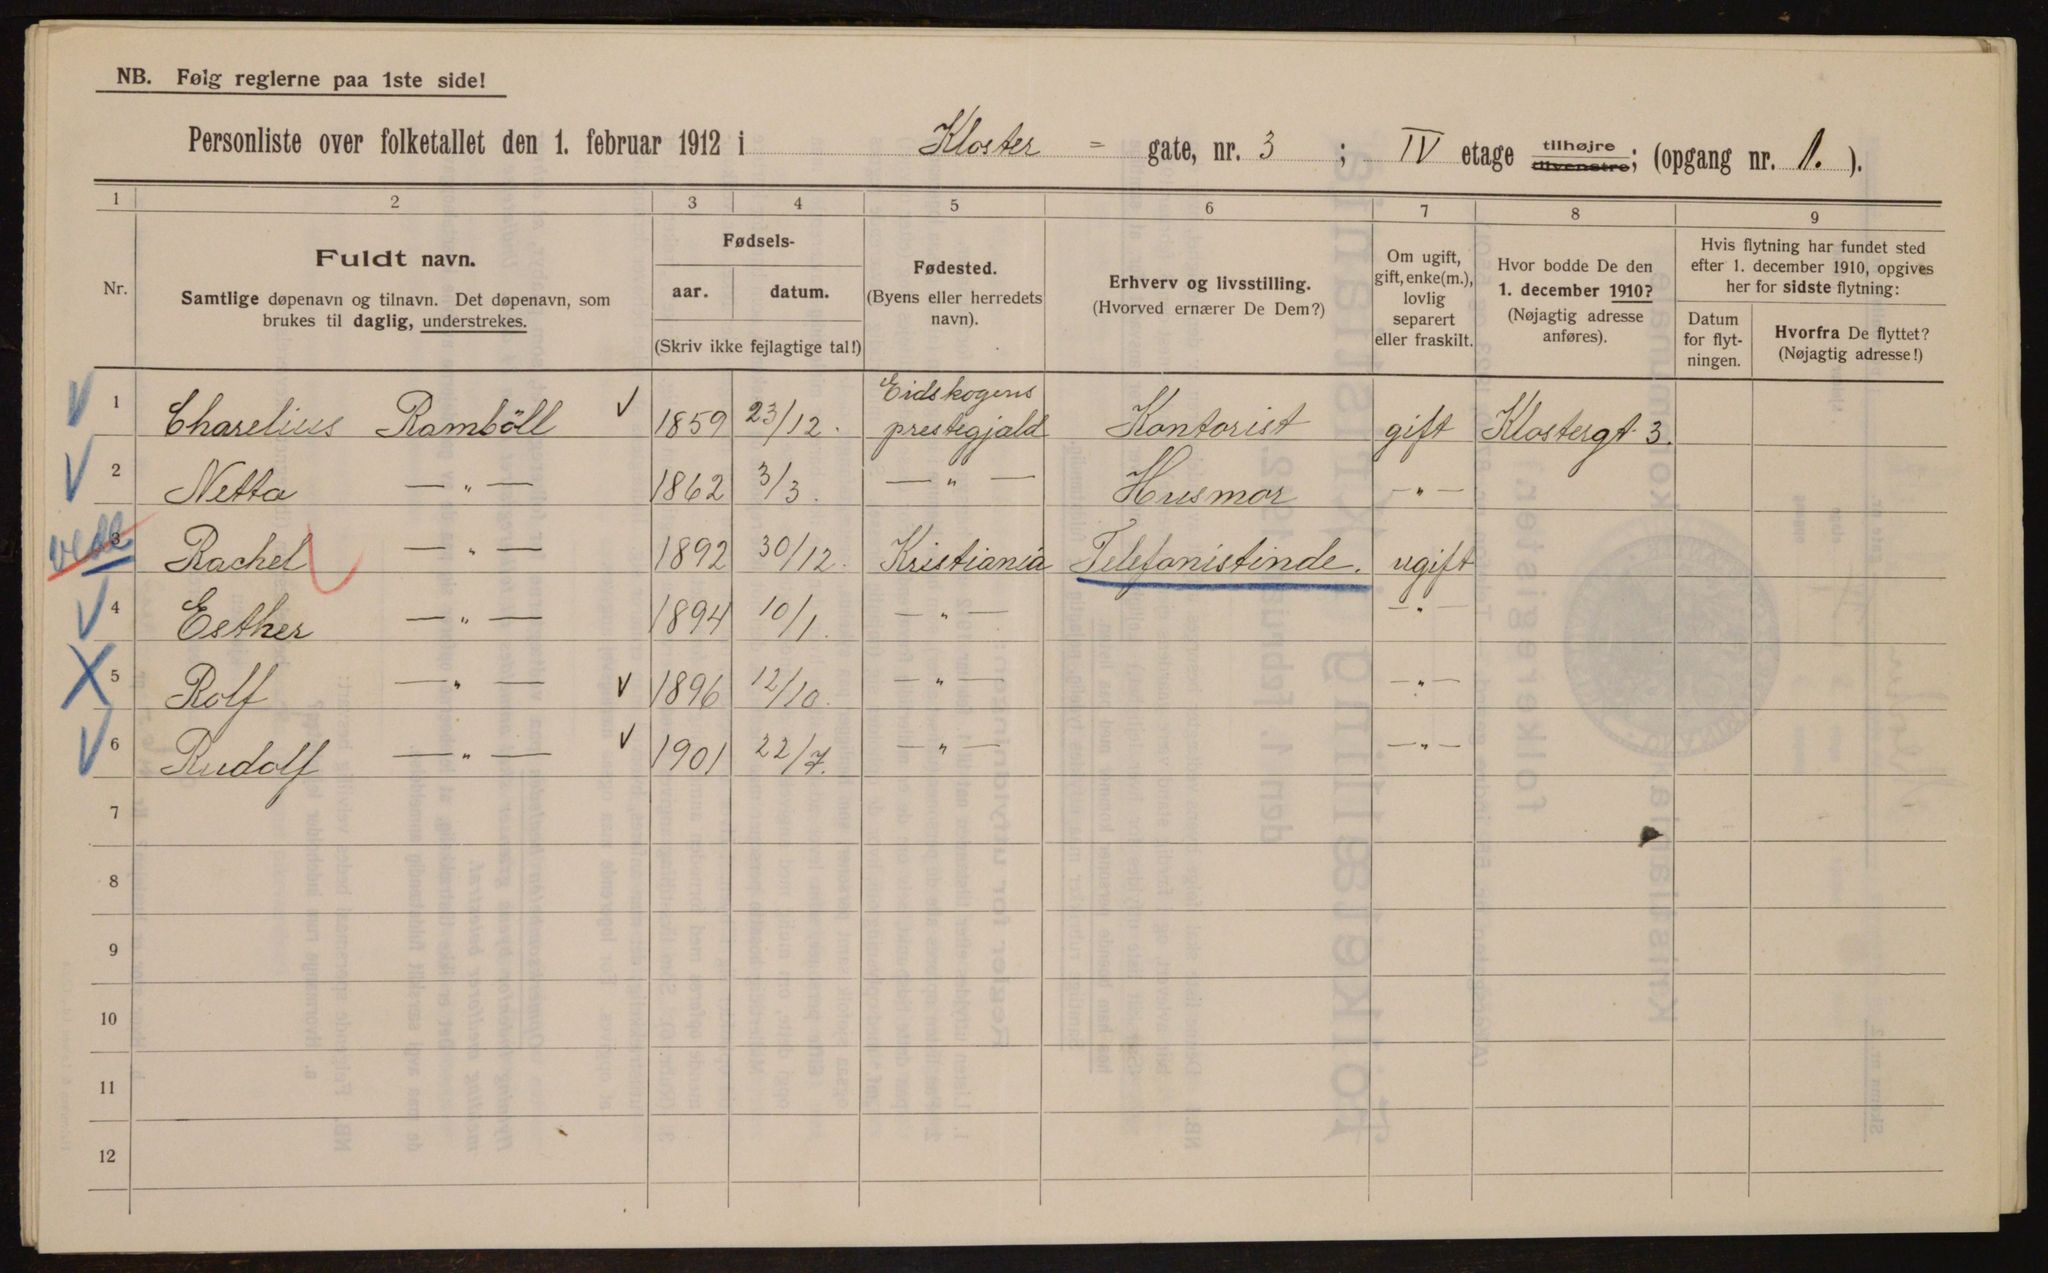 NB. Følg reglerne paa 1ste side!
Personliste over folketallet den 1. februar 1912 i Kloster = gate, nr. 3 ; IV etage tilhøjre tilvenstre; (opgang nr. 1. ).
1 2 3 4 5 6 7 8 9
Nr.
Fuldt navn.
Samtlige døpenavn og tilnavn. Det døpenavn, som
brukes til daglig, understrekes.
Fødsels-
aar. datum.
(Skriv ikke fejlagtige tal!)
Fødested.
(Byens eller herredets
navn).
Erhverv og livsstilling.
(Hvorved ernærer De Dem?)
Om ugift,
gift, enke(m.),
lovlig
separert
eller fraskilt.
Hvor bodde De den
1. december 1910?
(Nøjagtig adresse
anføres).
Hvis flytning har fundet sted
efter 1. december 1910, opgives
her for sidste flytning:
Datum
for flyt-
ningen.
Hvorfra De flyttet?
(Nøjagtig adresse!)
1 Charelius Ramböll 1859 23/12. Eidskogens prestegjald Kontorist gift Klostergt. 3.
2 Netta — „ — 1862 3/3. — „ — Husmor — „ —
3 Rachel — „ — 1892 30/12. Kristiania Telefonistinde. ugift
4 Esther — „ — 1894 10/1. — „ — — „ —
5 Rolf — „ — 1896 12/10. — „ — — „ —
6 Rudolf — „ — 1901 22/7. — „ — — „ —
7
8
9
10
11
12